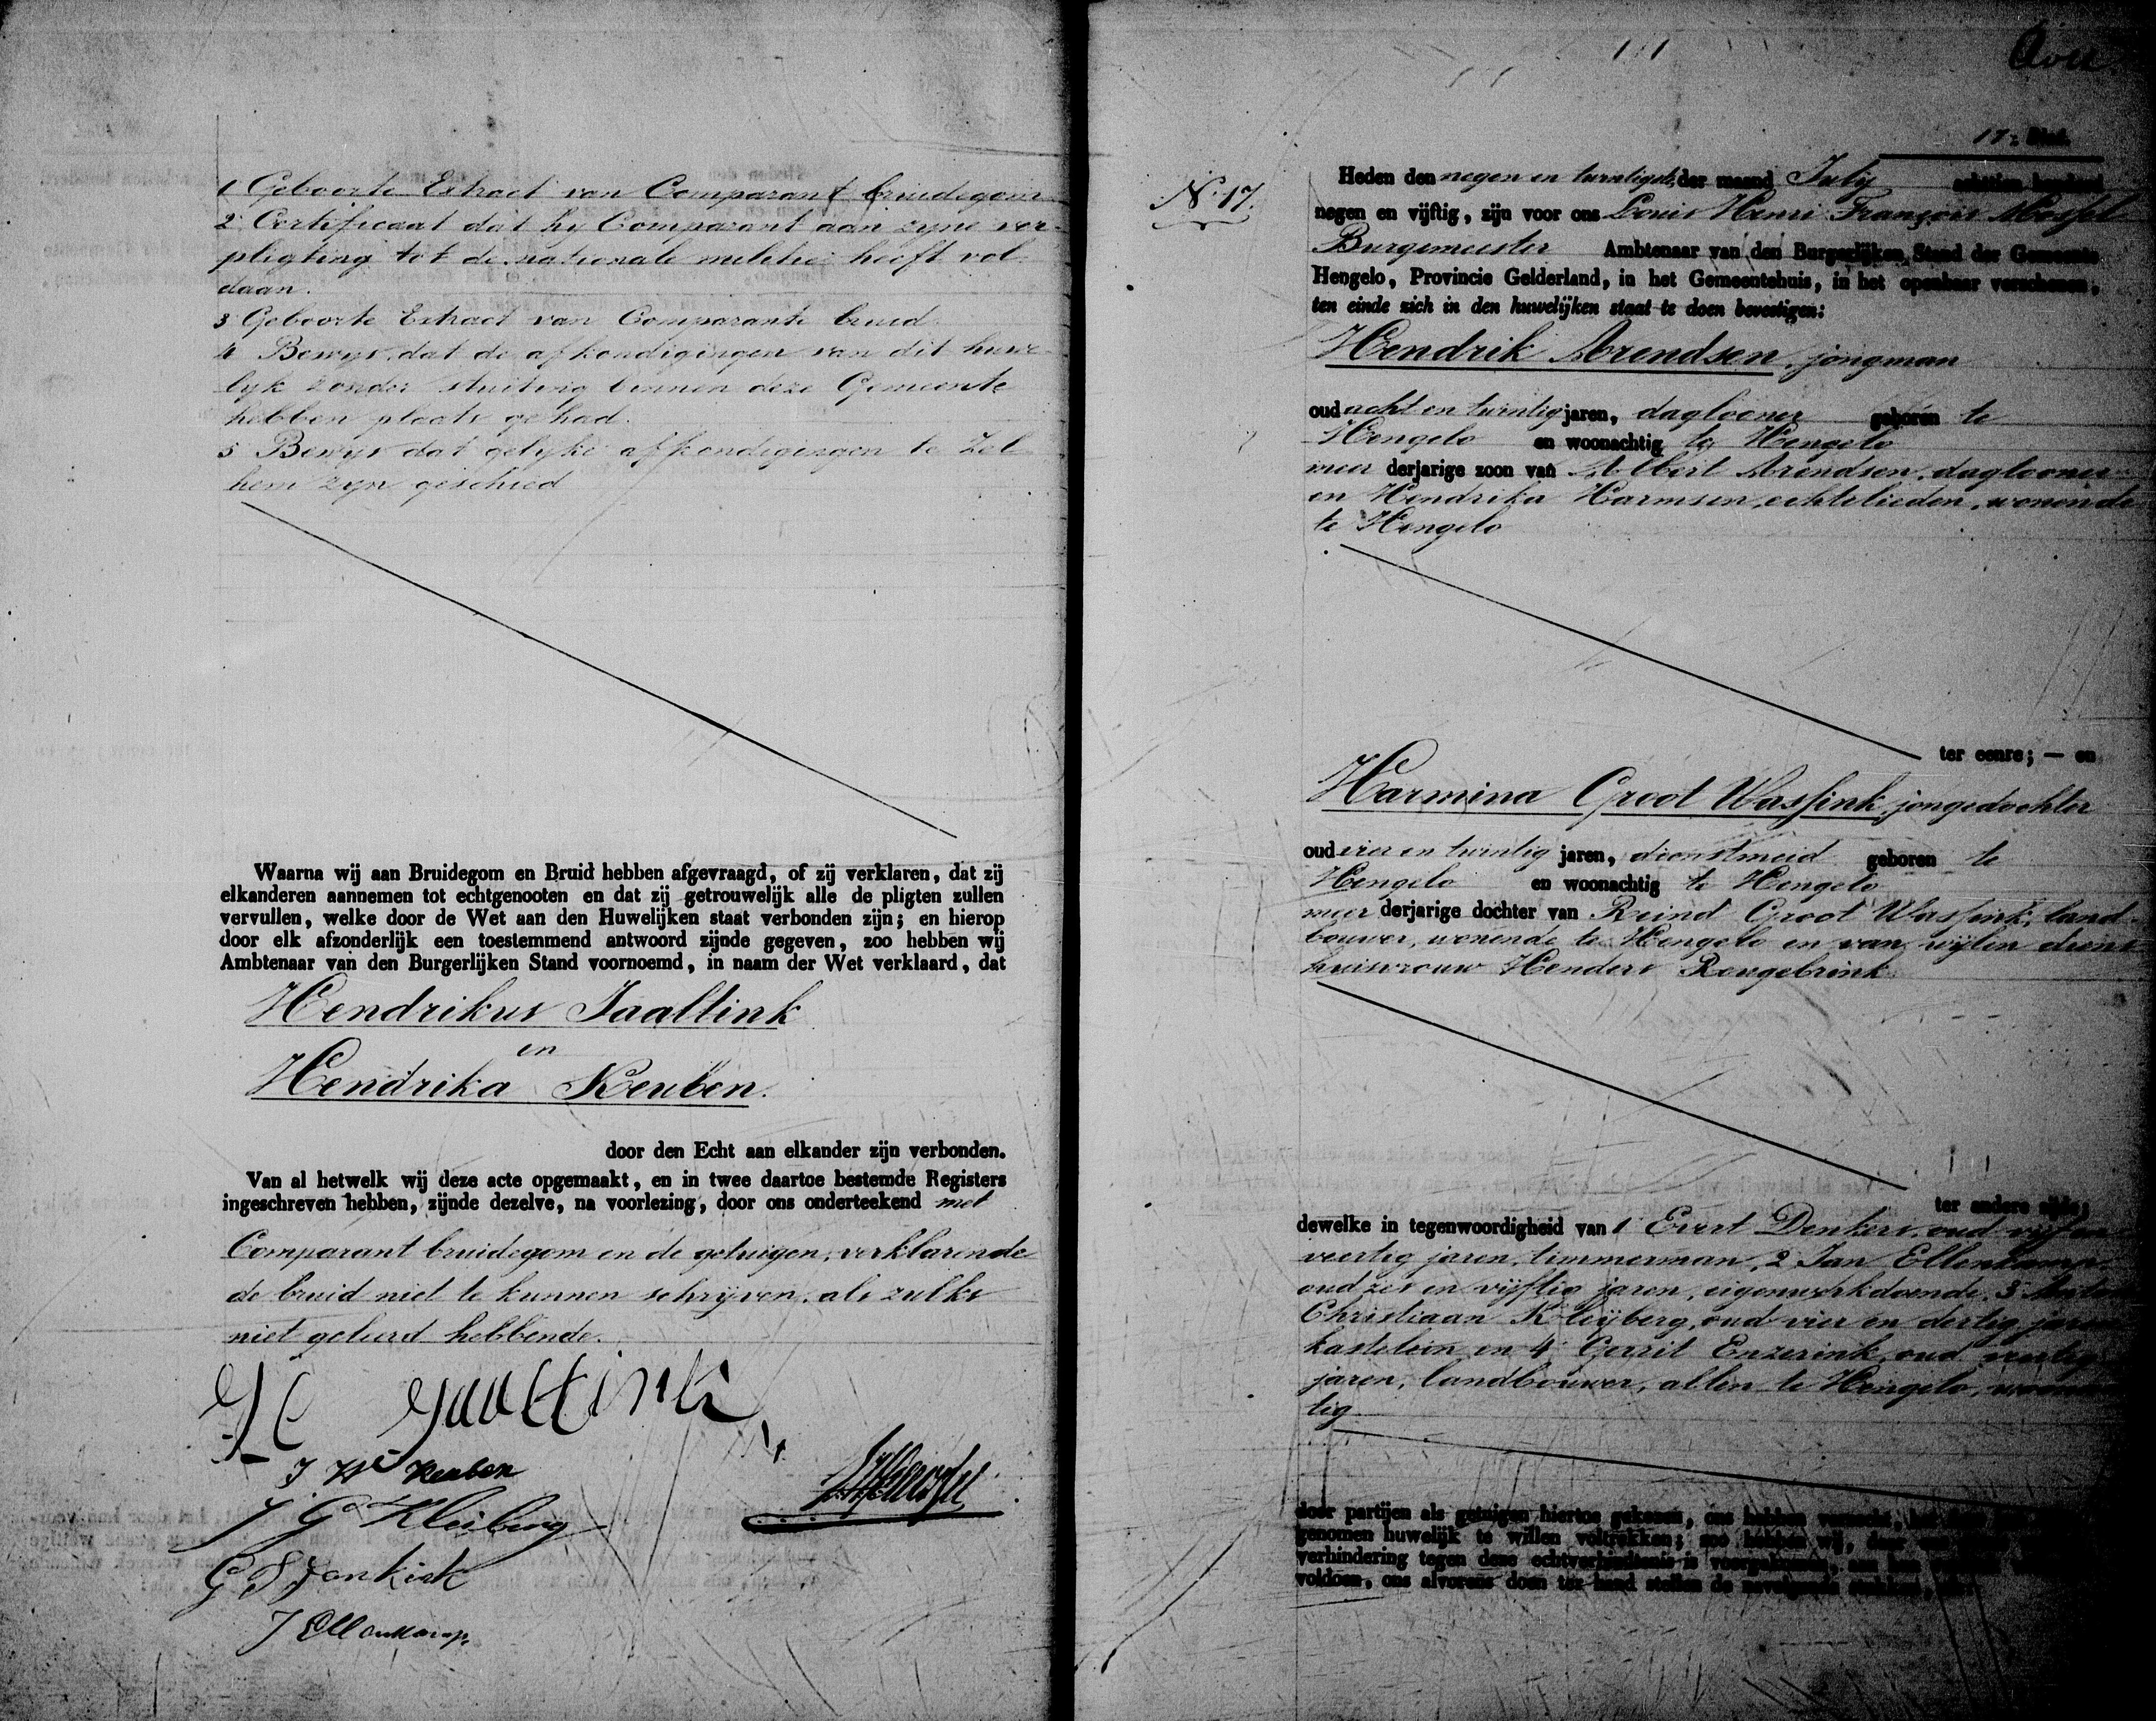 1 Geboorte Extract van Comparant bruidegom
2 Certificaat dat hy Comparant aan zyne ver-
pligting tot de nationale militie heeft vol-
daan.
3 Geboorte Extract van Comparante bruid.
4 Bewys dat de afkondigingen van dit huwe-
lyk zonder stuiting binnen deze Gemeente
hebben plaats gehad.
5 Bewys dat gelyke afkondigingen te Zel-
hem zyn geschied
Waarna wij aan Bruidegom en Bruid hebben afgevraagd, of zij verklaren, dat zij
elkanderen aannemen tot echtgenooten en dat zij getrouwelijk alle de pligten zullen
vervullen, welke door de Wet aan den Huwelijken staat verbonden zijn; en hierop
door elk afzonderlijk een toestemmend antwoord zijnde gegeven, zoo hebben wij
Ambtenaar van den Burgerlijken Stand voornoemd, in naam der Wet verklaard, dat
Hendrikus Jaaltink
en
Hendrika Reuben.
door den Echt aan elkander zijn verbonden.
Van al hetwelk wij deze acte opgemaakt, en in twee daartoe bestemde Registers
ingeschreven hebben, zijnde dezelve, na voorlezing, door ons onderteekend met
Comparant bruidegom en de getuigen, verklarende
de bruid niet te kunnen schrijven, als zulks
niet geleerd hebbende.
H Jaaltink
J W Reuben
J G Kleiberg
J Ellenkamp
17e Blad.
No. 17.
Heden den negen en twintigste der maand July achttien honderd
negen en vijftig, zijn voor ons Louis Henri François Mossel
Burgemeester Ambtenaar van den Burgerlijken Stand der Gemeente
Hengelo, Provincie Gelderland, in het Gemeentehuis, in het openbaar verschenen,
ten einde zich in den huwelijken staat te doen bevestigen:
Hendrik Arendsen, jongman
oud acht en twintig jaren, daglooner geboren te
Hengelo en woonachtig te Hengelo
meer derjarige zoon van Albert Arendsen, daglooner
en Hendrika Harmsen, echtelieden, wonende
te Hengelo
ter eenre; — en
Harmina Groot Wassink, jongedochter
oud vier en twintig jaren, dienstmeid geboren te
Hengelo en woonachtig te Hengelo
meer derjarige dochter van Reind Groot Wassink, land-
bouwer, wonende te Hengelo en van wijlen diens
huisvrouw Henders Rengebrink
ter andere zijde;
dewelke in tegenwoordigheid van 1 Evert Denkers, oud vijf en
veertig jaren, timmerman, 2 Jan Ellenkamp,
oud zes en vijftig jaren, eigenwerkdoende, 3
Christiaan Kleyberg, oud vier en dertig jaren
kastelein en 4 Gerrit Enzerink, oud veertig
jaren, landbouwer, allen te Hengelo, woonach
tig
door partijen als getuigen hiertoe gekozen, ons hebben verzocht,
genomen huwelijk te willen voltrekken; zoo hebben wij, daar
verhindering tegen deze echtverbindtenis is voorgekomen, aan
voldoen, ons alvorens doen ter hand stellen de navolgende stukken,